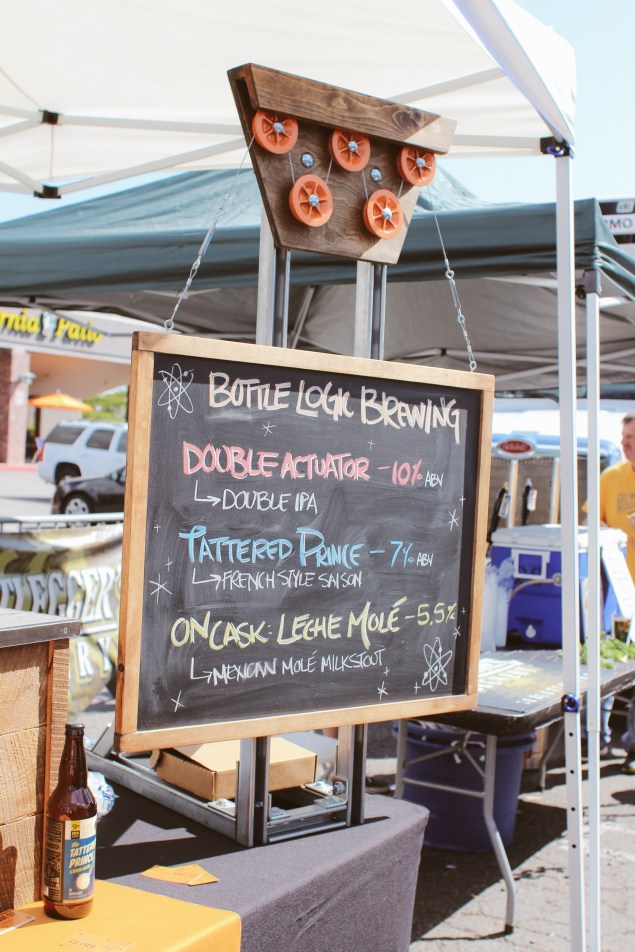 rnia Patio
BOTTLE LOGIC BREWING
DOUBLE ACTUATOR - 10% ABV
↳DOUBLE IPA
TATTERED PRINCE - 7% ABV
↳FRENCH STYLE SAISON
ON CASK: LECHE MOLÉ - 5.5%
↳MEXICAN MOLÉ MILK STOUT
LEGGER'S
RY
TATTERED
PRINCE